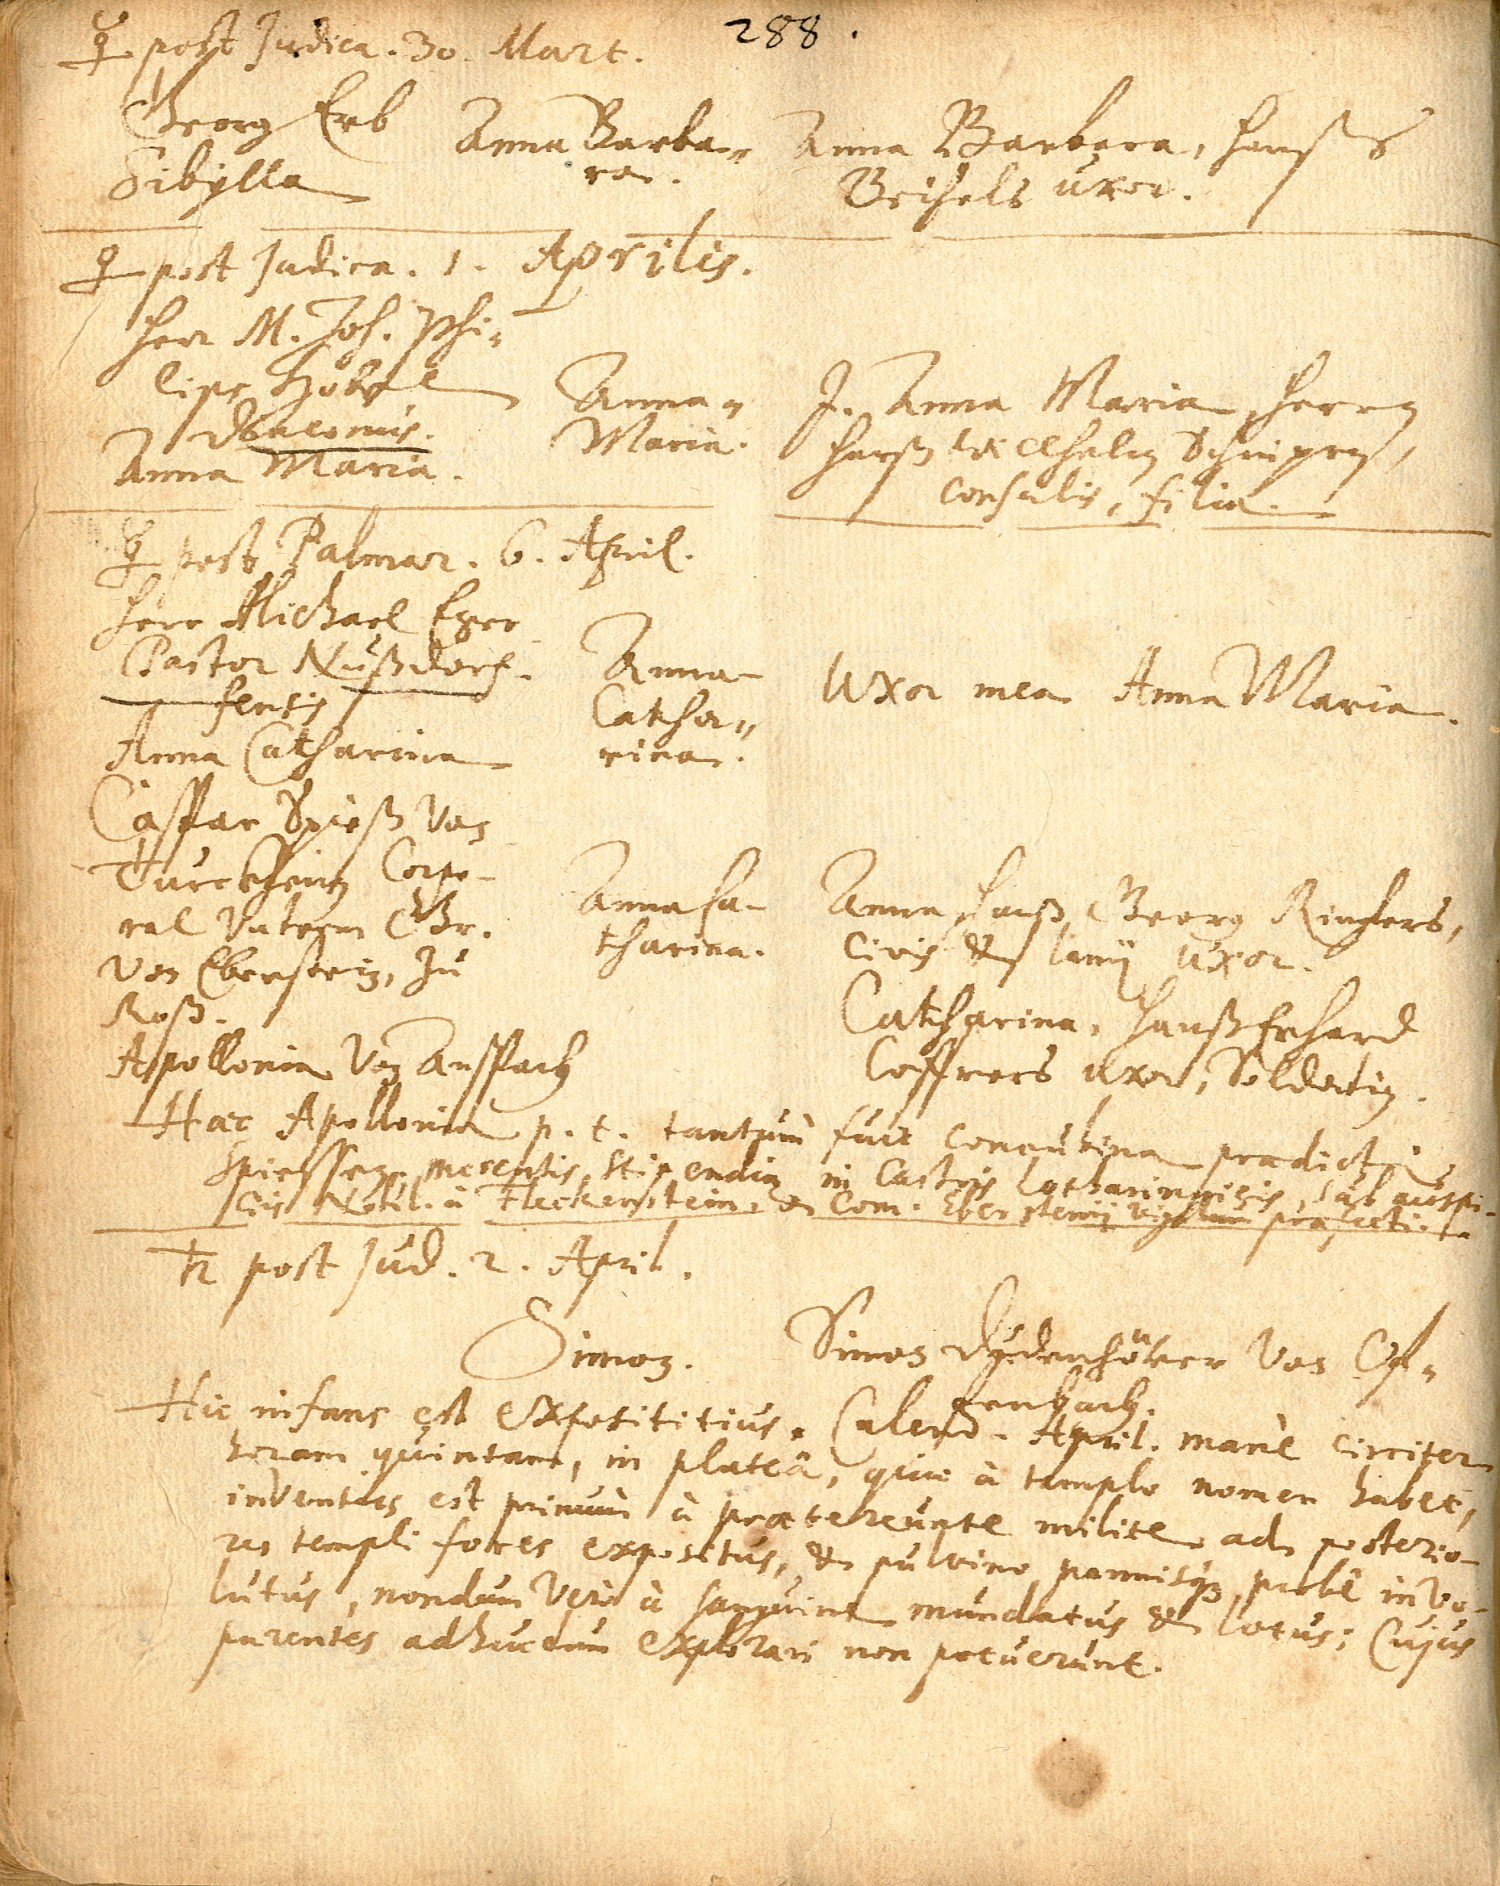 288.
☿ post Judica. 30. Mart.
Georg Erb
Sibylla
Anna Barba-
ra.
Anna Barbara, Hanß
Beisels uxor.
♀ post Judica. 1. Aprilis.
Herr M. Joh. Phi-
lips
Diaconus.
Anna Maria.
Anna
Maria.
J. Anna Maria, Herrn
Hanß Wilhelm
Consulis, filia.
☿ post Palmar. 6. April.
Herr Michael Eger
Pastor Nußdorf-
fensis
Anna Catharina
Anna
Catha-
rina.
Uxor mea Anna Maria.
Caspar Spieß von
Türckheim Corpo-
ral Unterm Gr.
von Eberstein, zu
Roß.
Apollonia von Anspach
Anna Ca-
tharina.
Anna, Hanß Georg
civis & lanij uxor.
Catharina, Hanß Erhard
uxor, Soldatin.
Haec Apollonia p. t. tantùm fuit concubina praedicti
Spiessen, merentis stipendia in Castris Lotharingicis, sub auspi-
ciis Nobil. à Fleckenstein, & Com. Ebersteinij
♄ post Jud. 2. April.
Simon.
Simon von Of-
fenbach.
Hic infans est expositicius. Calend. April. manè circiter
horam quintam, in plateâ, quae à templo nomen habet,
inventus est primùm à praetereunte milite ad posterio-
res templi fores expositus, & pulvino pannisq; probè invo-
lutus, nondum verò à sanguine mundatus & lotus; Cujus
parentes adhucdum explorari non potuerunt.